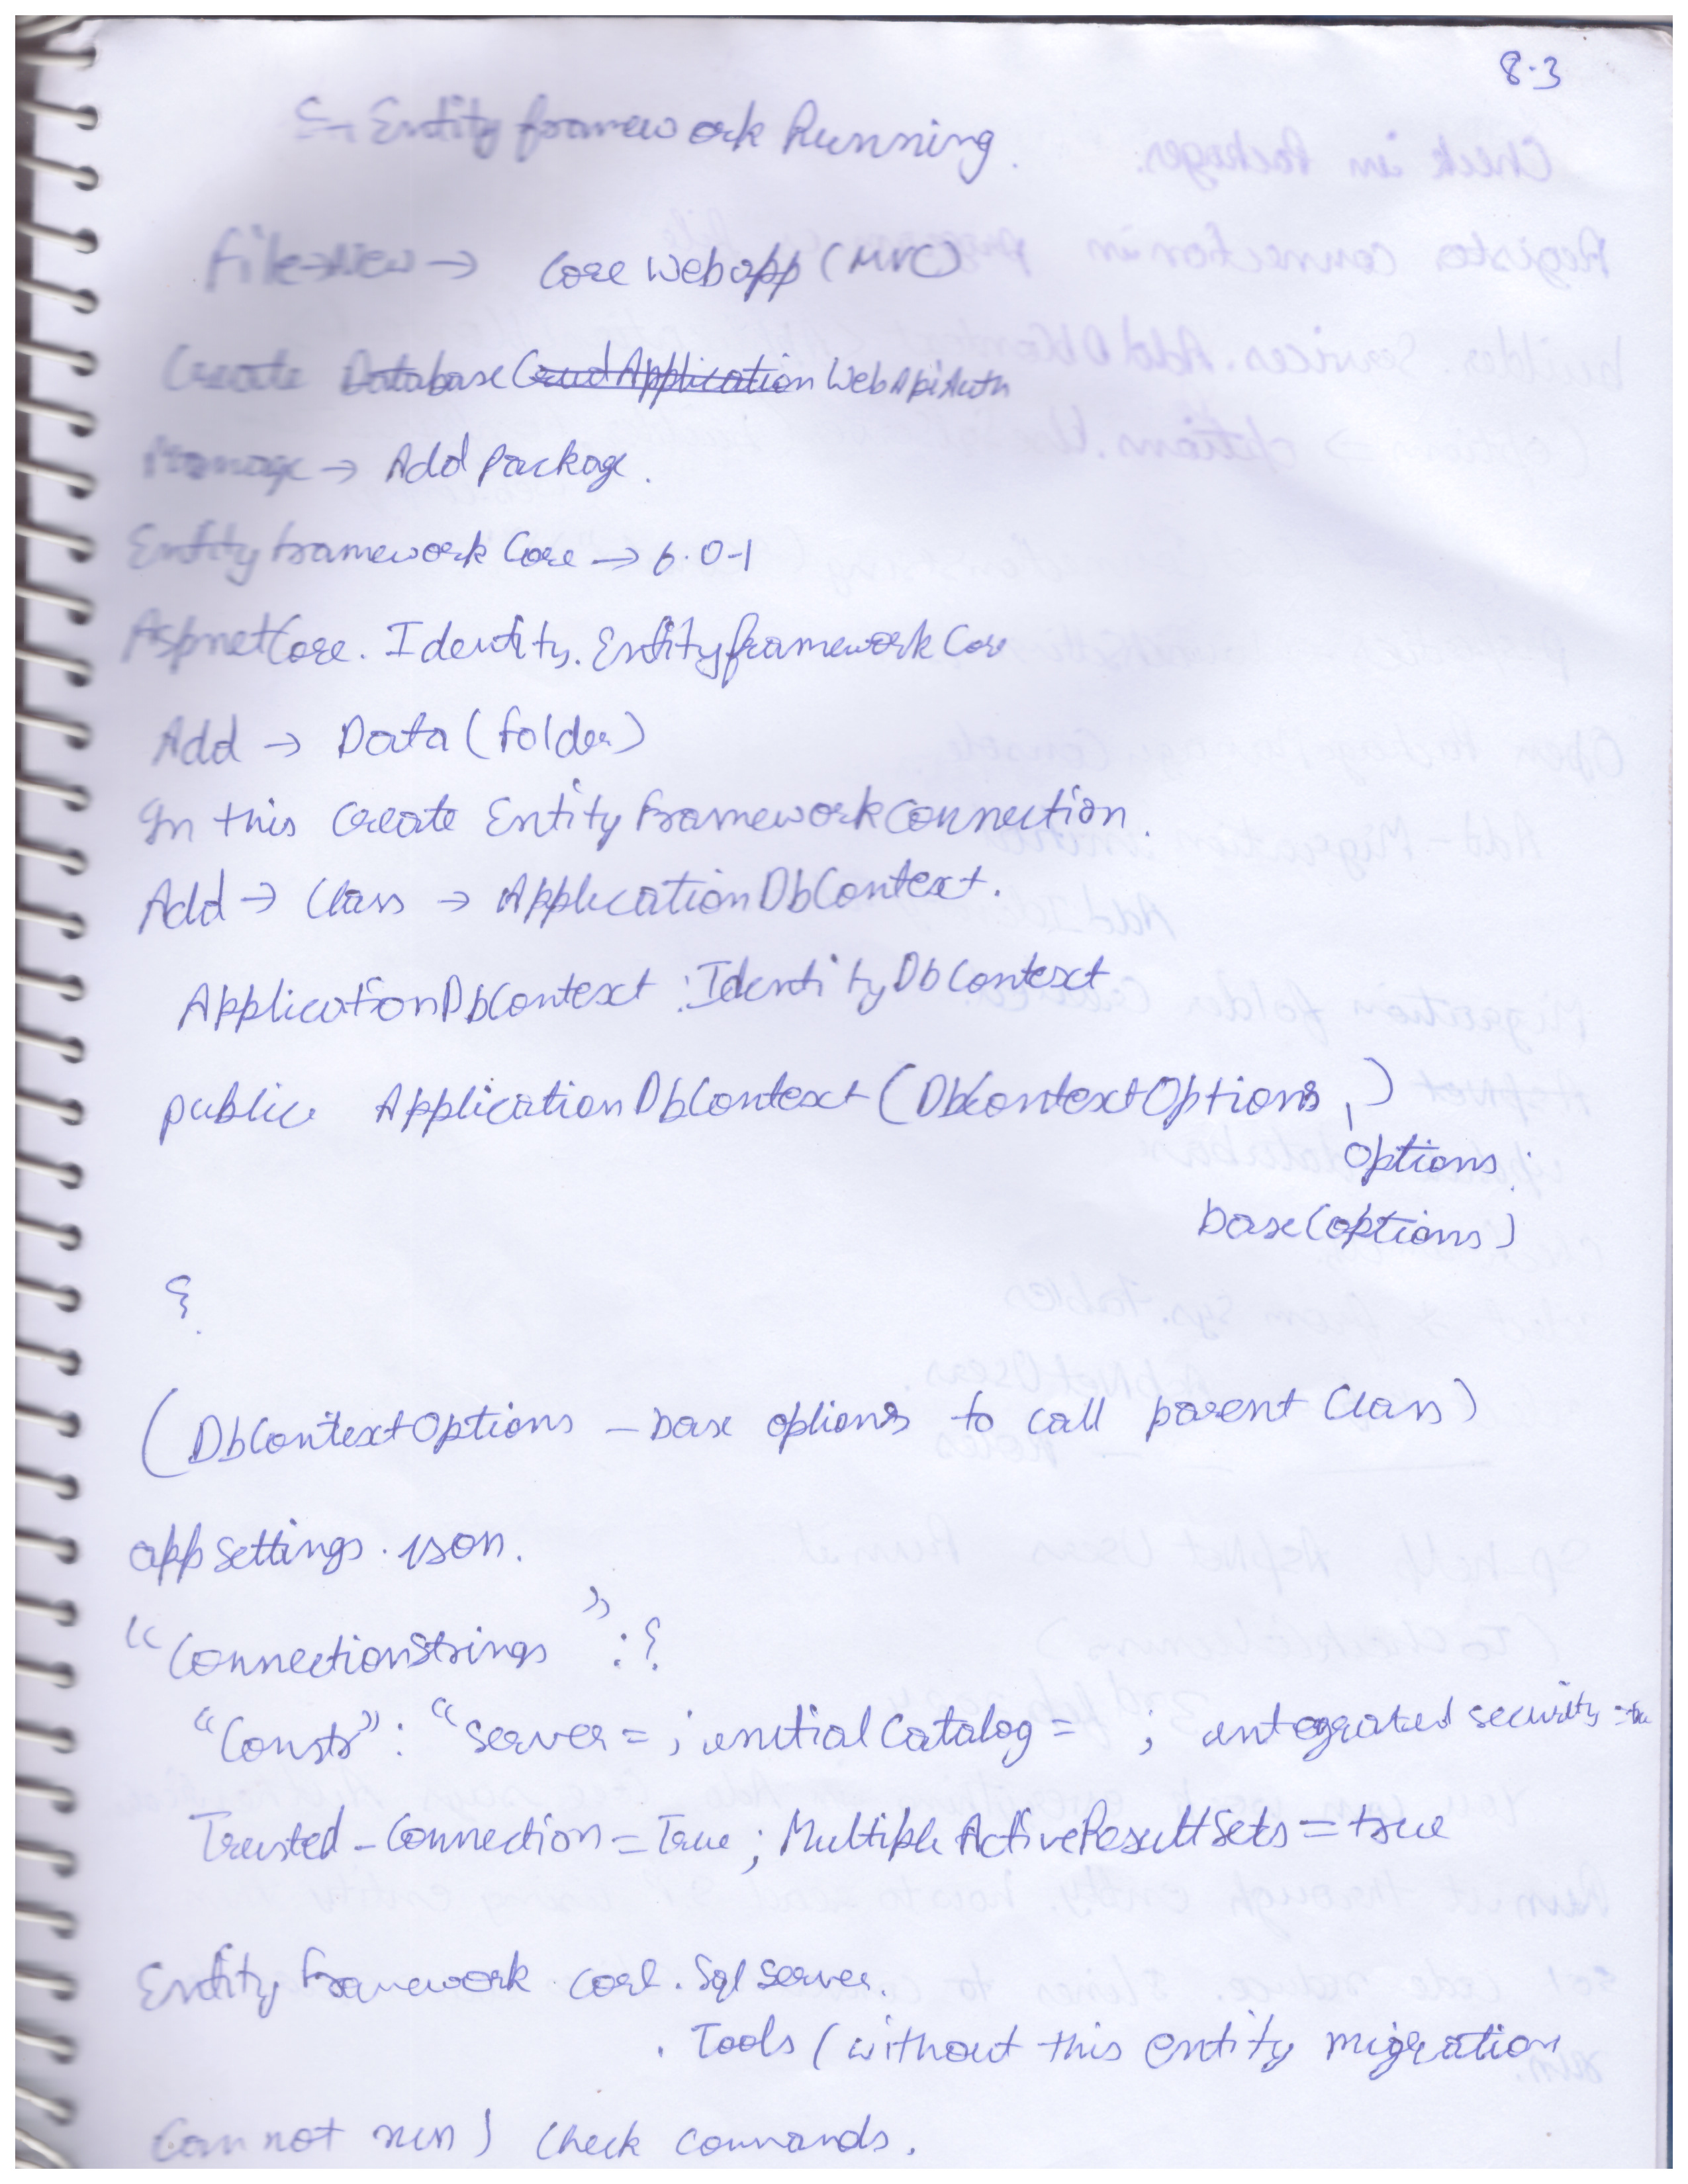 8.3
Entity framework Running.
File → New → Core Web app (MVC)
Create Database CrudApplication WebApiAuth
Manage → Add Package.
Entity framework Core → 6.0-1
AspnetCore. Identity. EntityframeworkCore
Add → Data (folder)
In this Create Entity FrameworkConnection.
Add → Class → ApplicationDbContext.
ApplicationDbContext : IdentityDbContext
public ApplicationDbContext (DbContextOptions, )
options :
base(options)
{
(DbContextOptions – base options to call parent Class)
appsettings.json.
"ConnectionStrings" : {
"Constr" : "Server = ; initial Catalog = ; integrated security = true
Trusted_Connection = True ; MultipleActiveResultSets = true
Entity framework core. Sql Server.
. Tools (without this entity migration
Can not run) Check commands.